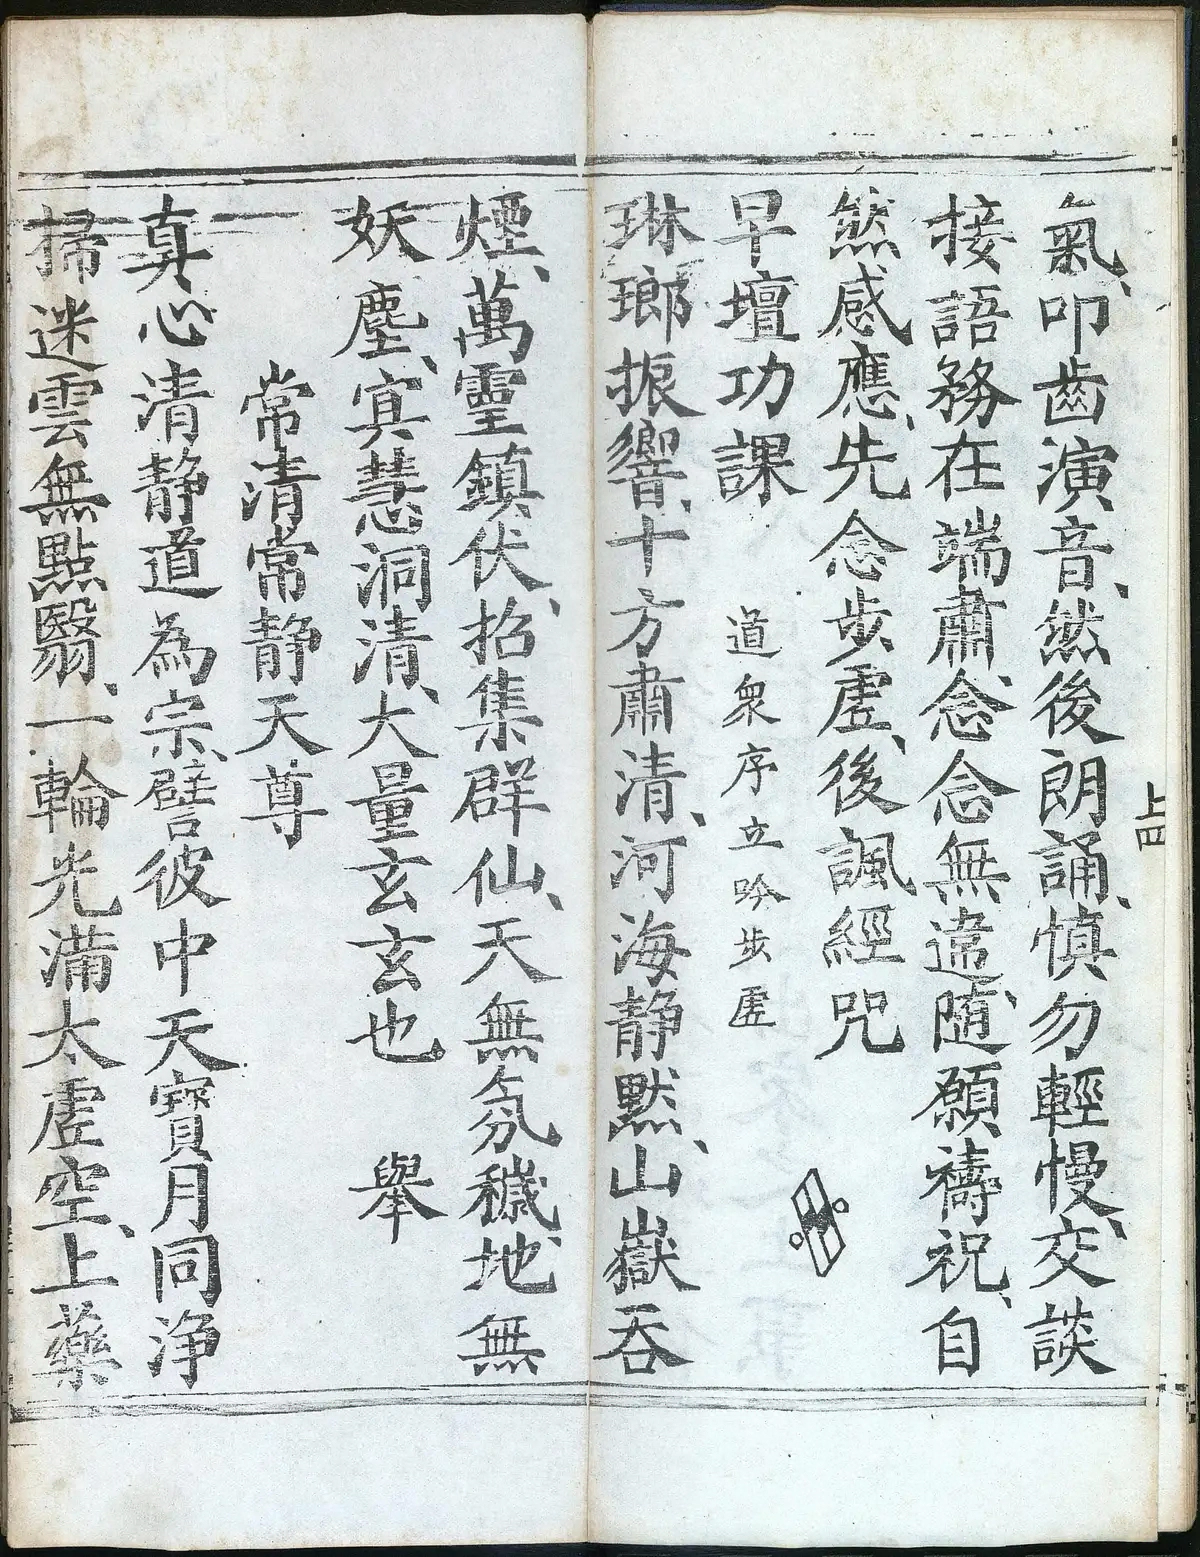 氣、叩齒演音、然後朗誦、慎勿輕慢、交談
接語務在端肅、念念無違、随願禱祝、自
然感應、先念步虛、後諷經咒
早壇功課 道衆序立吟步虛
琳瑯振響、十方肅清、河海静默、山嶽吞
煙、萬靈鎮伏、招集群仙、天無氛穢、地無
妖塵、冥慧洞清、大量玄玄也 舉
常清常静天尊
真心清静道為宗、譬彼中天寶月同浄
掃迷雲無點翳、一輪光滿太虛空、上藥
上四